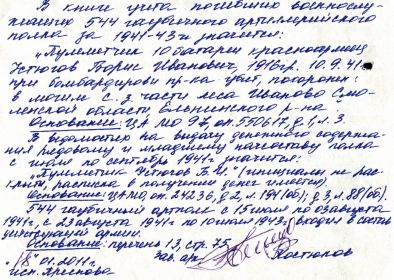 В книге учета погибших военнослу-
жащих 544 гаубичного артиллерийского
полка за 1941-43 гг значится:
"Пулеметчик 10 батареи красноармеец
Устюгов Борис Иванович, 1916 г.р. 10.9.41
при бомбардировки пр-ка убит, похоронен:
в могиле с.з. части леса Иваново Смо-
ленской области Ельнинского р-на
Основание: ЦА МО РФ, оп. 550617, д. 1, л. 3.
В ведомостях на выдачу денежного содержа-
ния рядовому и младшему начсоставу полка
с июля по сентябрь 1941 г значится:
"Пулеметчик Устюгов Б.И." (инициалы не рас-
крыты, расписка в получении денег имеется)
Основание: ЦАМО, оп. 24236, д. 2, л. 191(об); д. 3, л. 88(об).
544 гаубичный артполк с 15 июля по 03 августа
1941 г, с 23 августа 1941 г по 10 июля 1943 г. входил в состав
действующей армии.
Основание: перечень 13, стр. 75
Зав. арх. Костюков
"18" 01.2011 г.
исп.